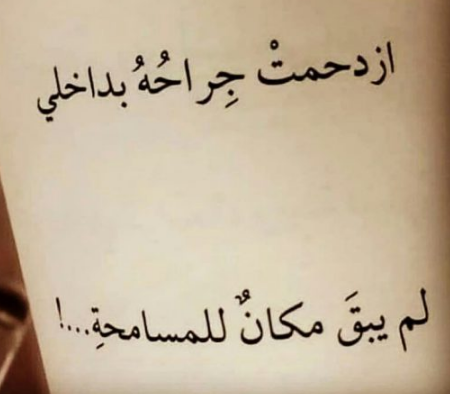 ازدحمتْ جِراحُهُ بداخلي
لم يبقَ مكانٌ للمسامحةِ...!